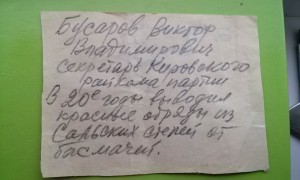 Бусаров Виктор
Владимирович
секретарь Кировского
райкома партии
В 20е годы выводил
красные отряды из
Сальских степей от
басмачей.